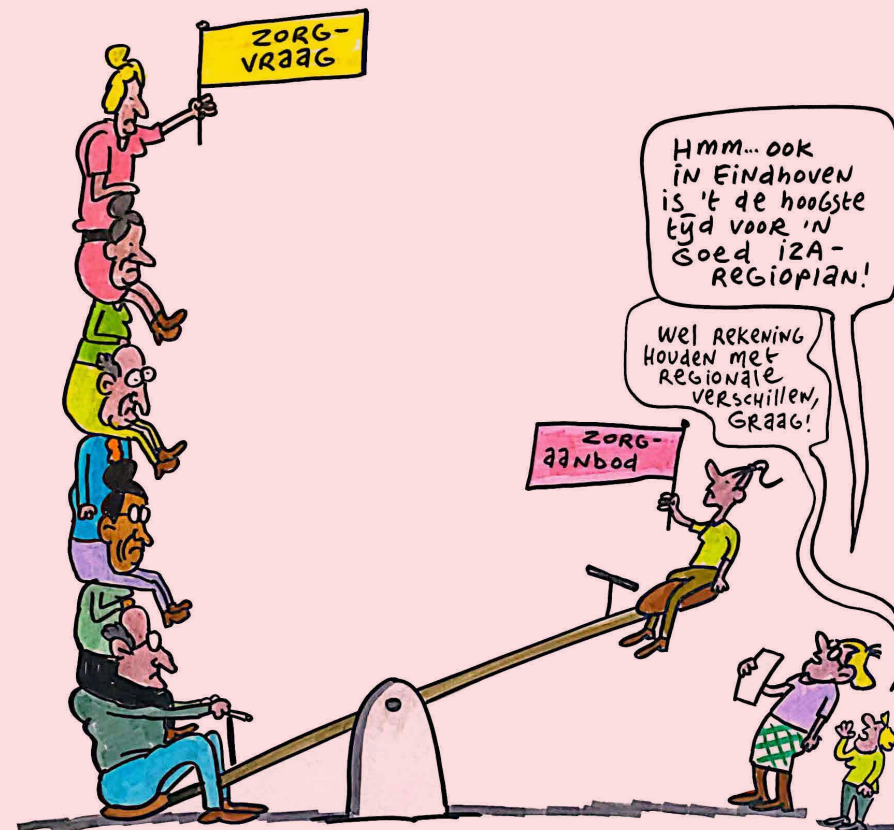 ZORG-
VRAAG
Hmm... ook
in Eindhoven
is 't de hoogste
tijd voor 'n
goed IZA-
REGIOPLAN!
Wel REKENING
HOUDEN met
REGIONALE
VERSCHILLEN,
GRAAG!
ZORG-
AANBOD